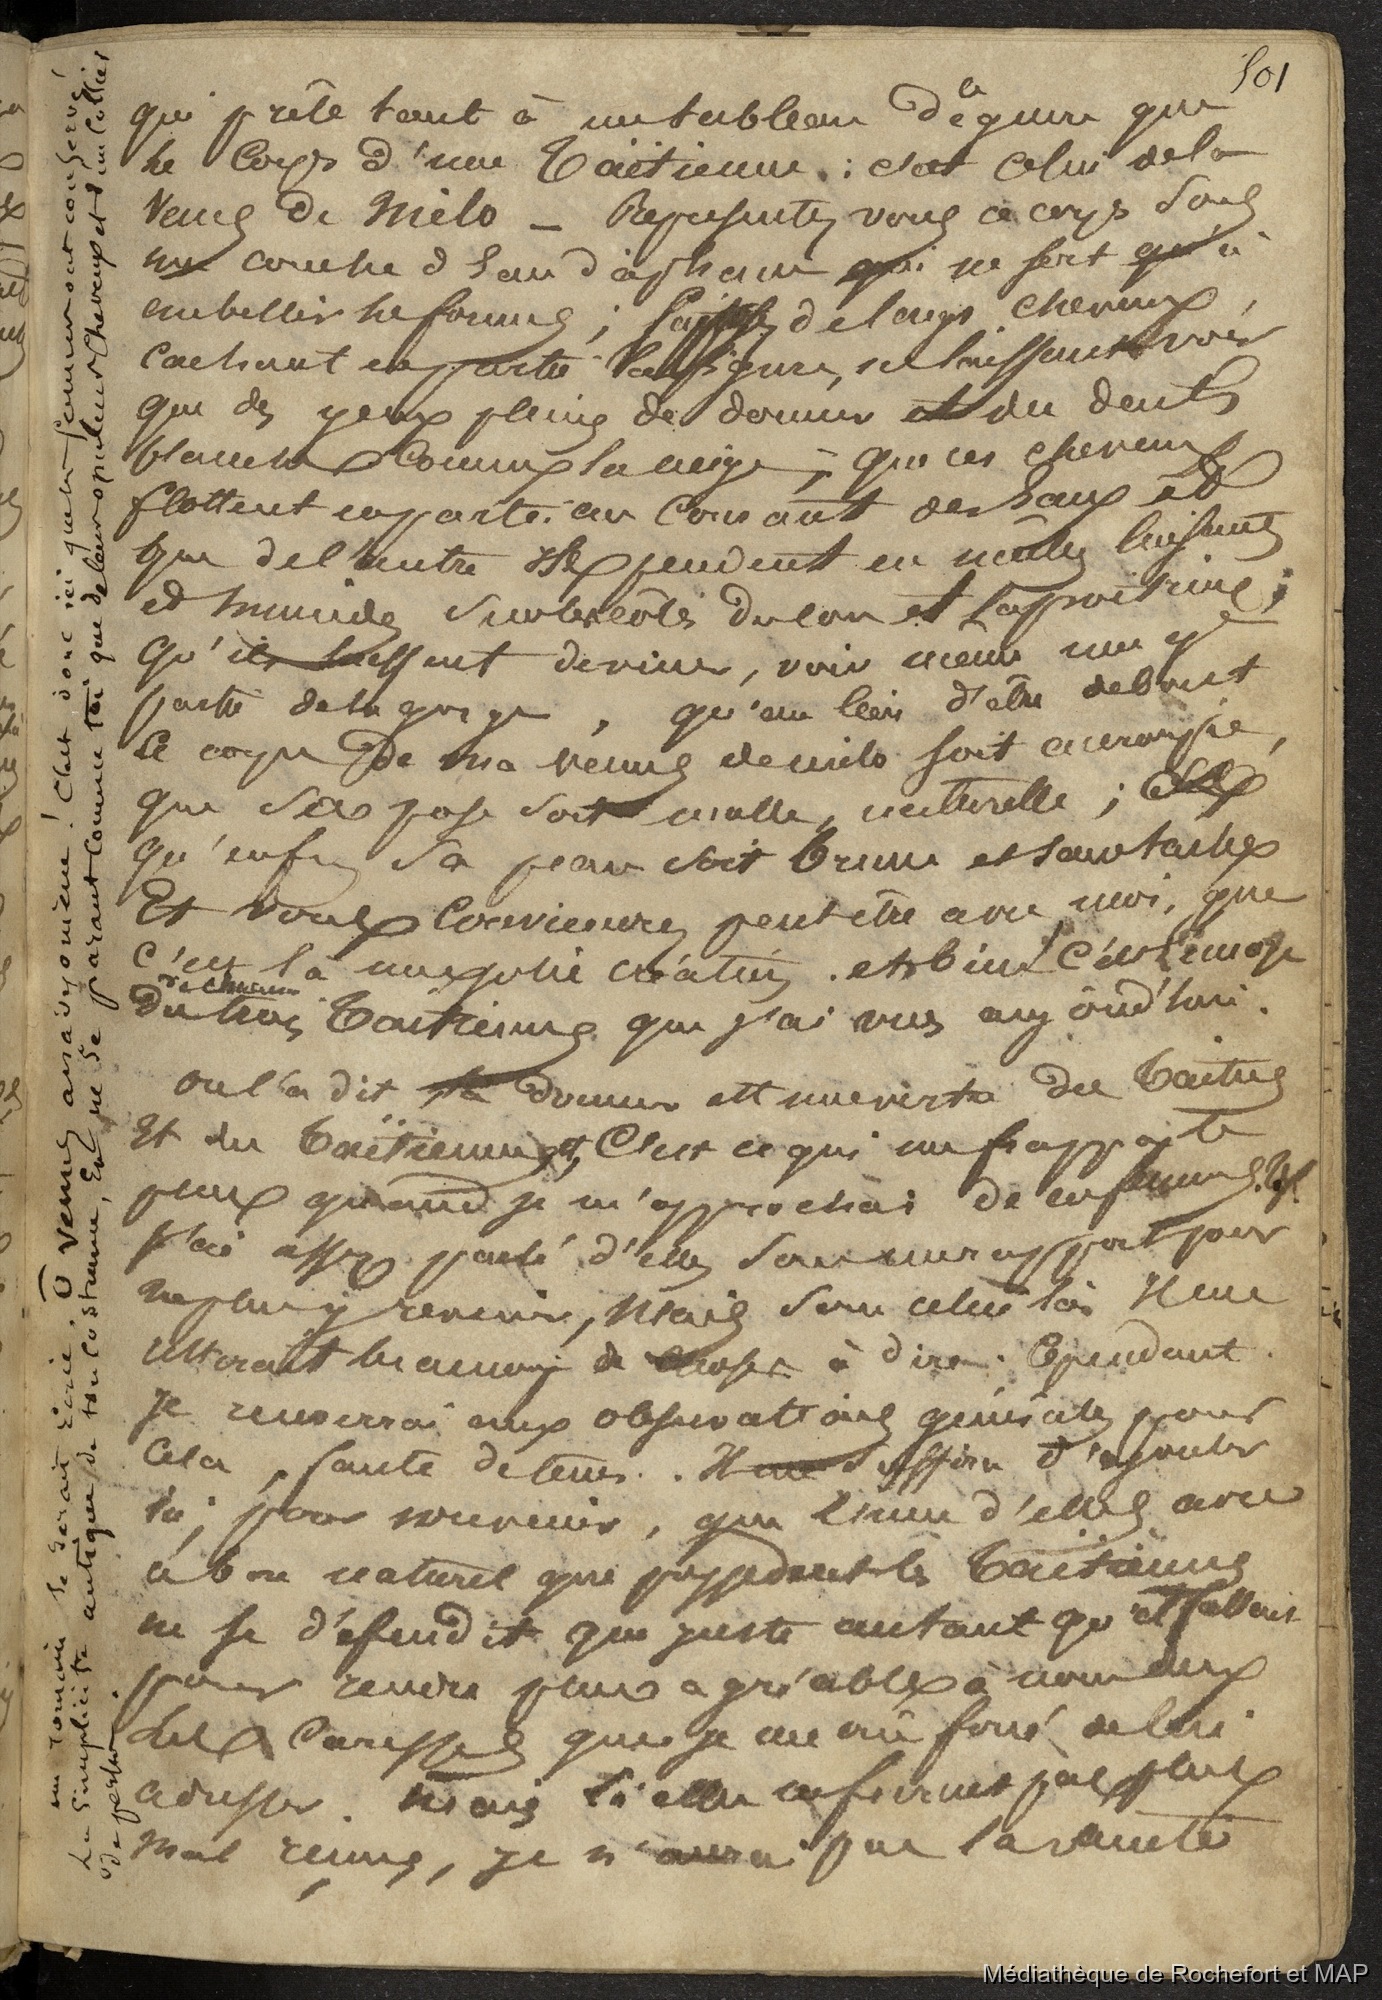 501
qui prête tant à un tableau de ce genre que
le corps d'une Taïtienne : c'est celui de la
Venus de Milo _ Representez vous ce corps sous
une couche d'eau diaphane qui ne sert qu'à
embellir les formes ; de longs cheveux,
cachant en partie la figure, ne laissant voir
que des yeux pleins de douceur et des dents
blanches comme la neige ; que ces cheveux
flottent en partie au courant des eaux et
que de l'autre ils pendent en mêches luisantes
et humides sur les côtés du cou et la poitrine ;
qu'ils laissent deviner, voir même une gde
partie de la gorge, qu'au lieu d'être debout
le corps de ma Venus de milo soit accroupie,
que sa pose soit molle, naturelle ;
qu'enfin sa peau soit brune et sans taches
Et vous conviendrez peut être avec moi, que
c'est là une jolie création. et bien! c'est l'image
de chacune
des trois Taïtiennes que j'ai vues aujourd'hui.
on l'a dit la douceur est une vertu des Taïtiens
Et des Taïtiennes, C'est ce qui me frappa le
plus quand je m'approchai de ces femmes.
j'ai assez parlé d'elles sous un rapport pour
ne plus y revenir, Mais sous celui là il me
resterait beaucoup de choses à dire. Cependant
je renverrai aux observations générales pour
cela, faute de tems. Il me suffira d'ajouter
ici, pour souvenir, que l'une d'elles avec
ce bon naturel que possedent les Taïtiennes
ne se défendit que juste autant qu'il fallait
pour rendre plus agréables à nous deux
les caresses que je me crû forcé de lui
adresser. Mais si elles ne furent pas plus
mal reçues, je n'aurai pas la vanité
un romain se serait écrié, Ô Venus anadyomène! C'est donc ici que les femmes ont conservé
La simplicité antique de ton costume, En ne se parant comme toi que de leurs opulents Cheveux et d'un Collier
de perles.
Médiathèque de Rochefort et MAP